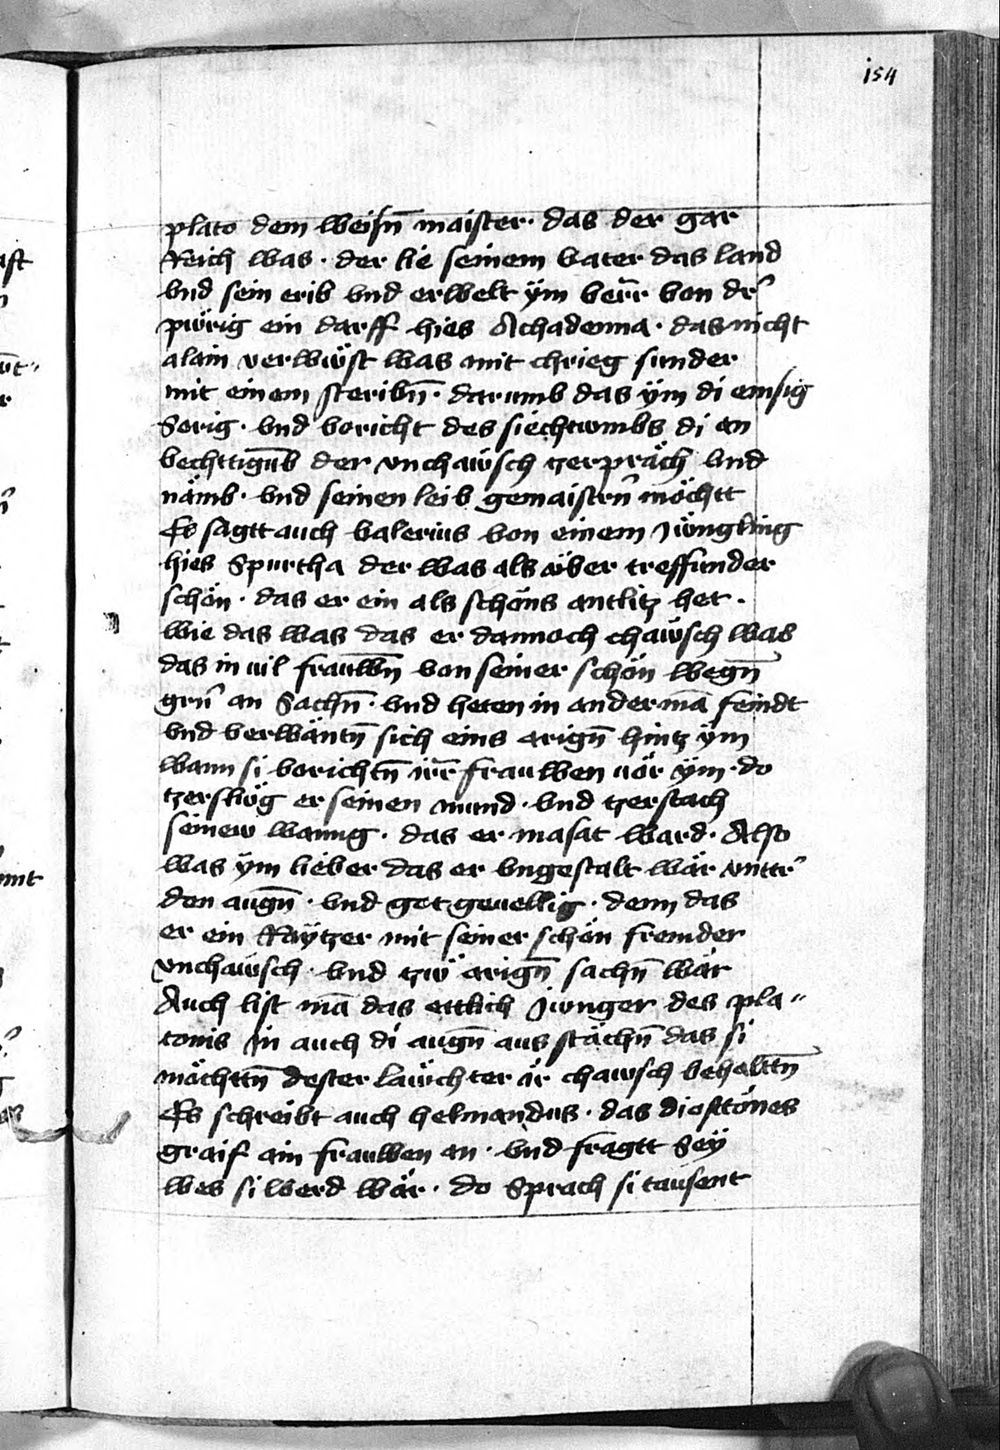 154
plato dem weisn̄ maister · das der gar
Reich was · der lie seinem vater das land
vnd sein erib vnd erwelt ÿm verr̄ von dr̉
pürig ein darff hies Achademia · das nicht
alain verwüst was mit chrieg sunder
mit einem steribn̄ · darumb das ÿm di emsig
Sorig · vnd voricht des siechtumbs di an
vechttigūb der vnchawsch tzerpräch vnd
nämb · vnd seinen leib gemaistrn̄ möchtt
Es sagtt auch valerius von einem Jüngling
hies Spurtha der was als über treffunder
schön · das er ein als schöns antlitz het ·
wie das was das er dannoch chawsch was
das in vil frauwn̄ von seiner schön wegn̄
grn̉ an Sachn̄ · vnd heten in ander mā feindt
vnd verwäntn̄ sich eins arign̄ hintz ÿm
wann si vorichtn̄ irr̄ frauwen vör ÿm · do
tzerslüg er seinen mund · vnd tzerstach
seinew wanng · das er masat ward · Also
was ÿm lieber das er vngestalt wär vnttr̉
den augn̄ · vnd got geuellig · denn das
er ein Raÿtzer mit seiner schön fremder
vnchawsch · vnd tzw̋ arign̄ sachn̄ wär
Auch list mā das ettlich Junger des pla"
tonis in auch di augn̄ aus stächn̄ das si
möchttn̄ dester lawchter ir chawsch behalttn̄
Es schreibt auch helmandus · das diosttönes
graif ain frauwen an · vnd fragtt Seÿ
wes si werd wär · do Sprach si tausent